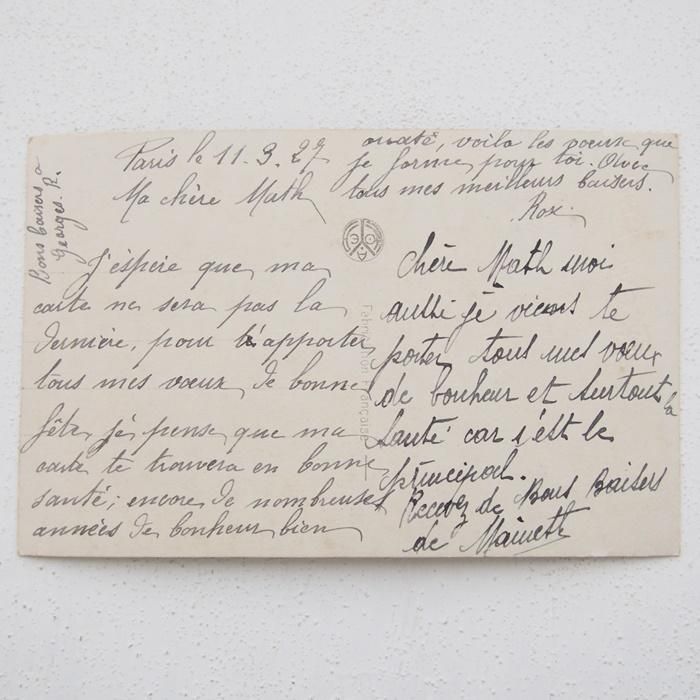 Paris le 11.3.27
Ma chère Math
J'espère que ma
carte ne sera pas la
dernière, pour t'apporter
tous mes vœux de bonne
fête je pense que ma
carte te trouvera en bonne
santé; encore de nombreuses
années de bonheur bien
ouaté, voila les voeux que
je forme pour toi. Avec
tous mes meilleurs baisers.
Chère Math moi
aussi je viens te
porter tous mes voeux
de bonheur et surtout la
santé car c'est le
principal.
Recevez de Bons Baisers
de
Bons baisers a
Georges. R.
Fabrication Française